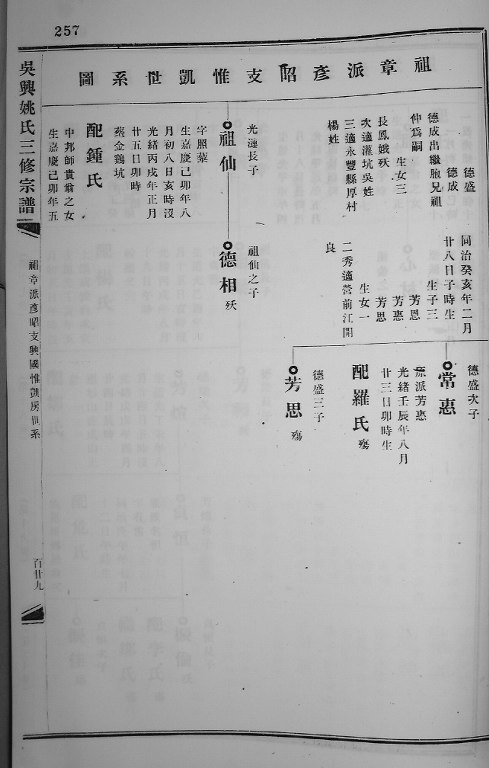 257
祖章派彥昭支惟凱世系圖
德盛
德成
德成出繼胞兄祖
仲爲嗣
生女三
長鳳娥殀
次適灌坑吳姓
三適永豐縣厚村
楊姓
光漣長子
祖仙
字照藜
生嘉慶己卯年八
月初八日亥時沒
光緒丙戌年正月
廿五日卯時
葬金鷄坑
配鍾氏
中邦師貴翁之女
生嘉慶己卯年五
同治癸亥年二月
廿八日子時生
生子三
芳恩
芳惠
芳思
生女一
二秀適營前江開
良
祖仙之子
德相
殀
德盛次子
常惠
派芳惠
光緒壬辰年八月
廿三日卯時生
配羅氏
殤
德盛三子
芳思
殤
吳興姚氏三修宗譜
祖章派彥昭支興國惟凱房世系
百廿九